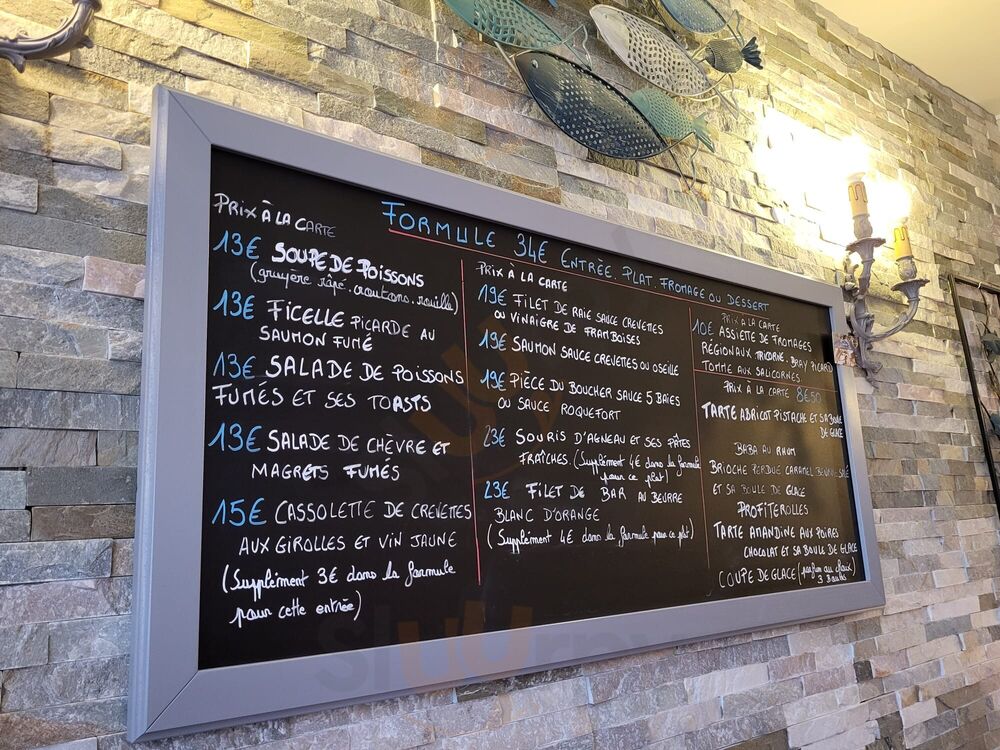 FORMULE 34€ ENTRÉE. PLAT. FROMAGE OU DESSERT
PRIX À LA CARTE
13€ SOUPE DE POISSONS
(gruyère râpé. croutons. rouille)
13€ FICELLE PICARDE AU
SAUMON FUMÉ
13€ SALADE DE POISSONS
FUMÉS ET SES TOASTS
13€ SALADE DE CHÈVRE ET
MAGRETS FUMÉS
15€ CASSOLETTE DE CREVETTES
AUX GIROLLES ET VIN JAUNE
(Supplément 3€ dans la formule
pour cette entrée)
PRIX À LA CARTE
19€ FILET DE RAIE SAUCE CREVETTES
OU VINAIGRE DE FRAMBOISES
19€ SAUMON SAUCE CREVETTES OU OSEILLE
19€ PIÈCE DU BOUCHER SAUCE 5 BAIES
OU SAUCE ROQUEFORT
23€ SOURIS D'AGNEAU ET SES PÂTES
FRAÎCHES. (Supplément 4€ dans la formule
pour ce plat)
23€ FILET DE BAR AU BEURRE
BLANC D'ORANGE
(Supplément 4€ dans la formule pour ce plat)
PRIX À LA CARTE
10€ ASSIETTE DE FROMAGES
RÉGIONAUX TRICORNE. BRAY PICARD
TOMME AUX SALICORNES.
PRIX À LA CARTE 8€50
TARTE ABRICOT PISTACHE ET SA BOULE
DE GLACE
BABA AU RHUM
BRIOCHE PERDUE CARAMEL BEURRE SALÉ
ET SA BOULE DE GLACE
PROFITEROLLES
TARTE AMANDINE AUX POIRES
CHOCOLAT ET SA BOULE DE GLACE
COUPE DE GLACE (parfum au choix)
3 Boules
sluurpy